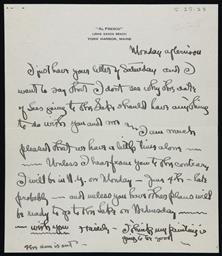 5-25-25
"AL FRESCO"
LONG SANDS BEACH
YORK HARBOR, MAINE
Monday afternoon
I just have your letter of Saturday and I
want to say that I don't see why this date
of going to the Lake should have anything
to do with you and me — I am much
pleased that we have a little time alone —
Unless I hear from you to the contrary
I will be in N.Y. on Monday — June 4th - late
probably — and unless you have other plans will
be ready to go to the Lake on Wednesday
with you
I think my painting is
going to be good